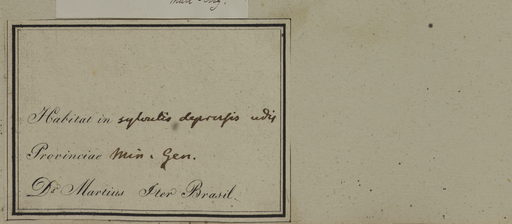 Habitat in sylvulis depressis udis
Provinciae Min. Gen.
Dr Martius Iter Brasil.